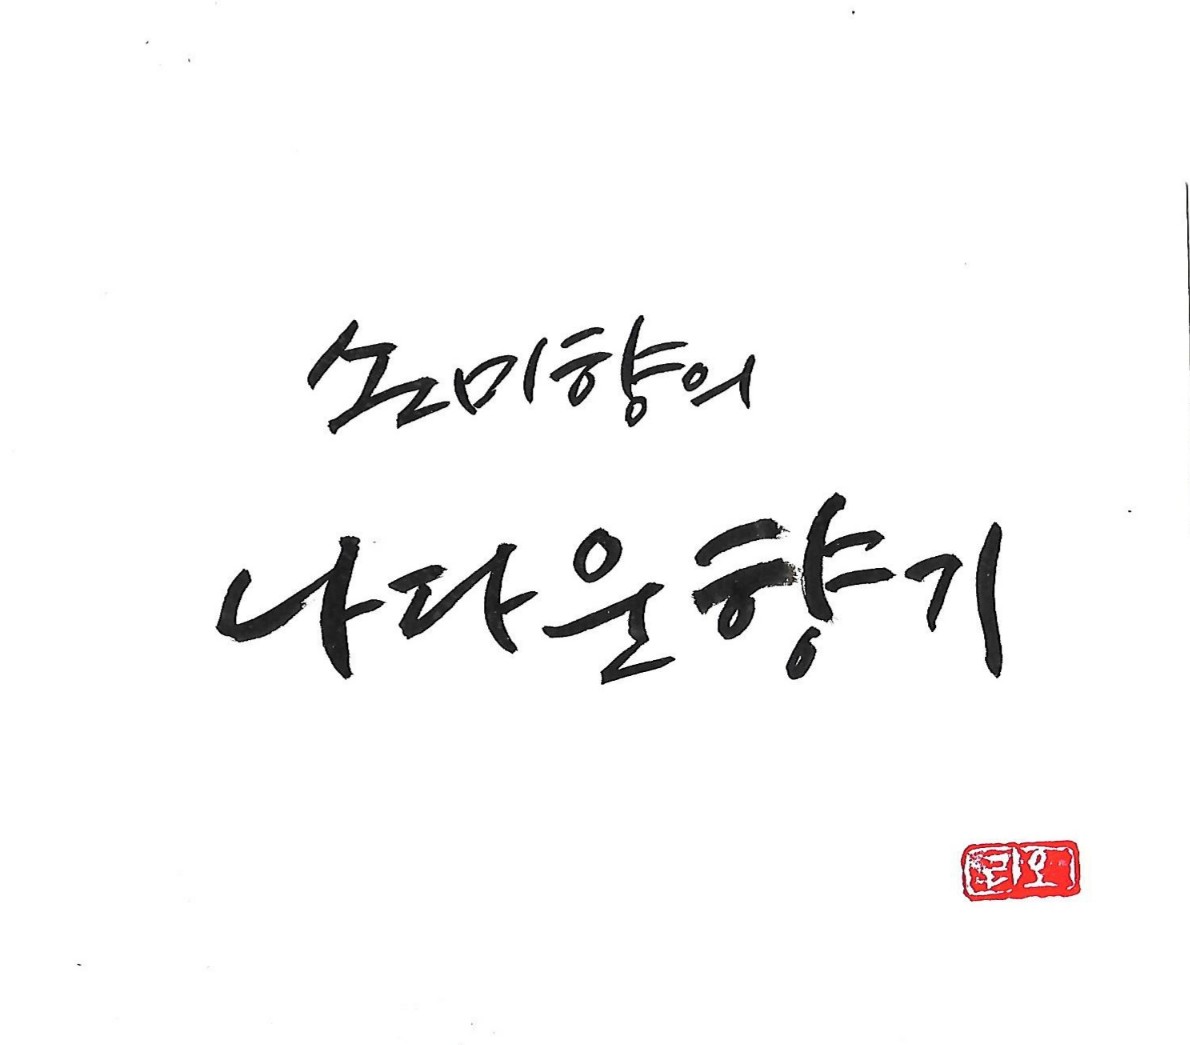 손미향의
나다운 향기
리오